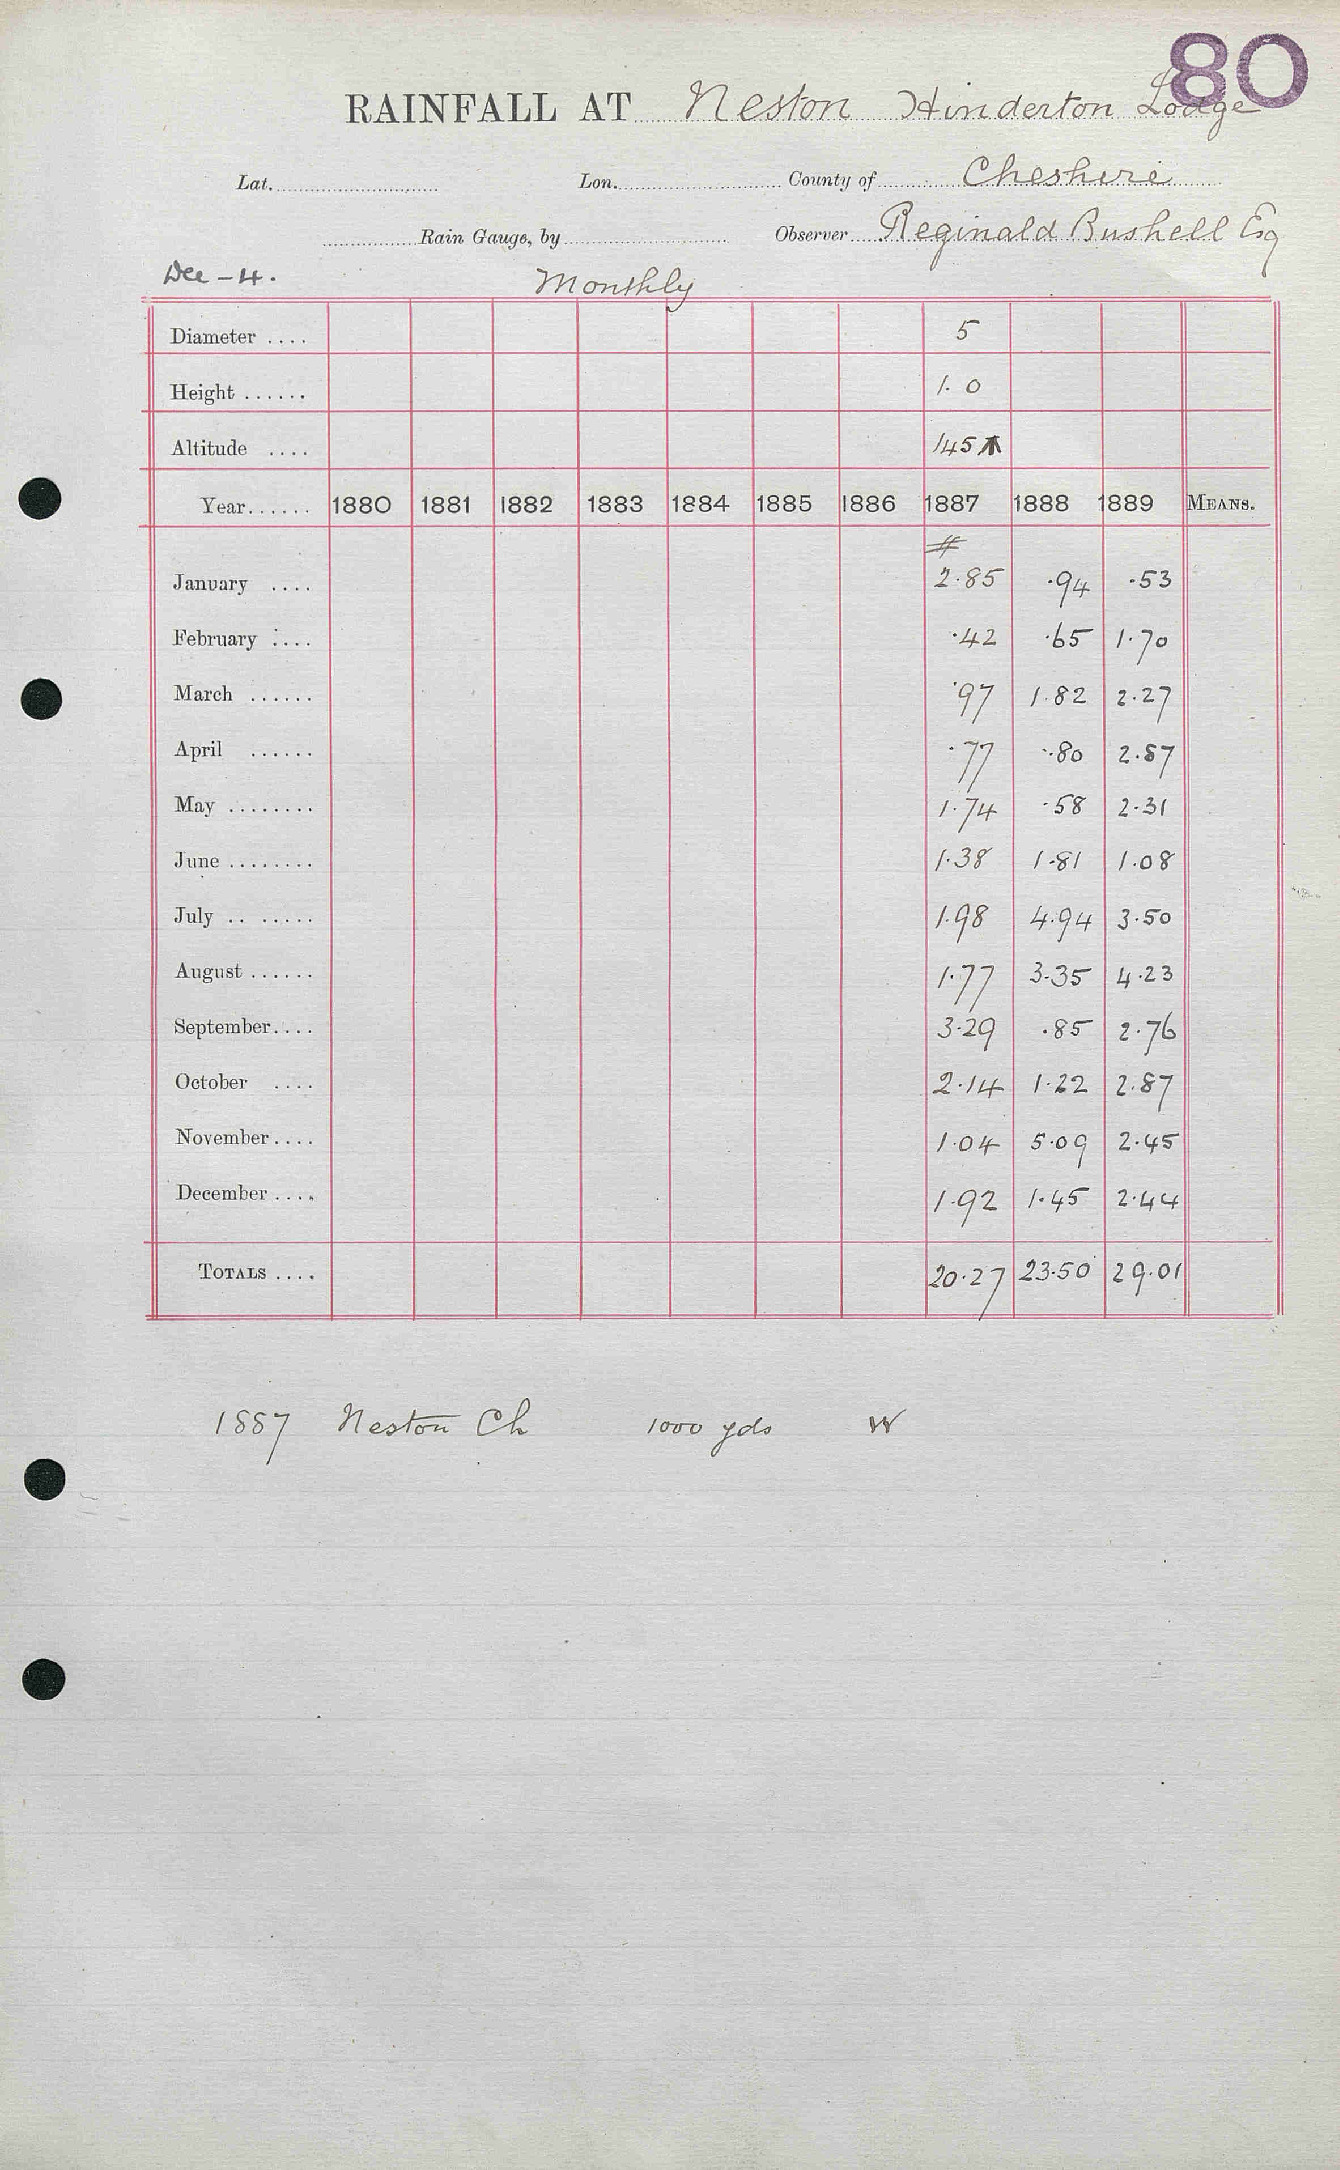 80
RAINFALL AT Neston Hinderton Lodge
Lat. Lon. County of Cheshire
Rain Gauge, by Observer Reginald Bushell Esq
Dee - 4. Monthly
Diameter .... 5
Height ...... 1.0
Altitude .... 145
Year...... 1880 1881 1882 1883 1884 1885 1886 1887 1888 1889 MEANS.
#
January .... 2.85 .94 .53
February .... .42 .65 1.70
March ...... .97 1.82 2.27
April ...... .77 .80 2.87
May ........ 1.74 .58 2.31
June ........ 1.38 1.81 1.08
July .. ...... 1.98 4.94 3.50
August ...... 1.77 3.35 4.23
September.... 3.29 .85 2.76
October .... 2.14 1.22 2.87
November.... 1.04 5.09 2.45
December .... 1.92 1.45 2.44
TOTALS .... 20.27 23.50 29.01
1887 Neston Ch 1000 yds W